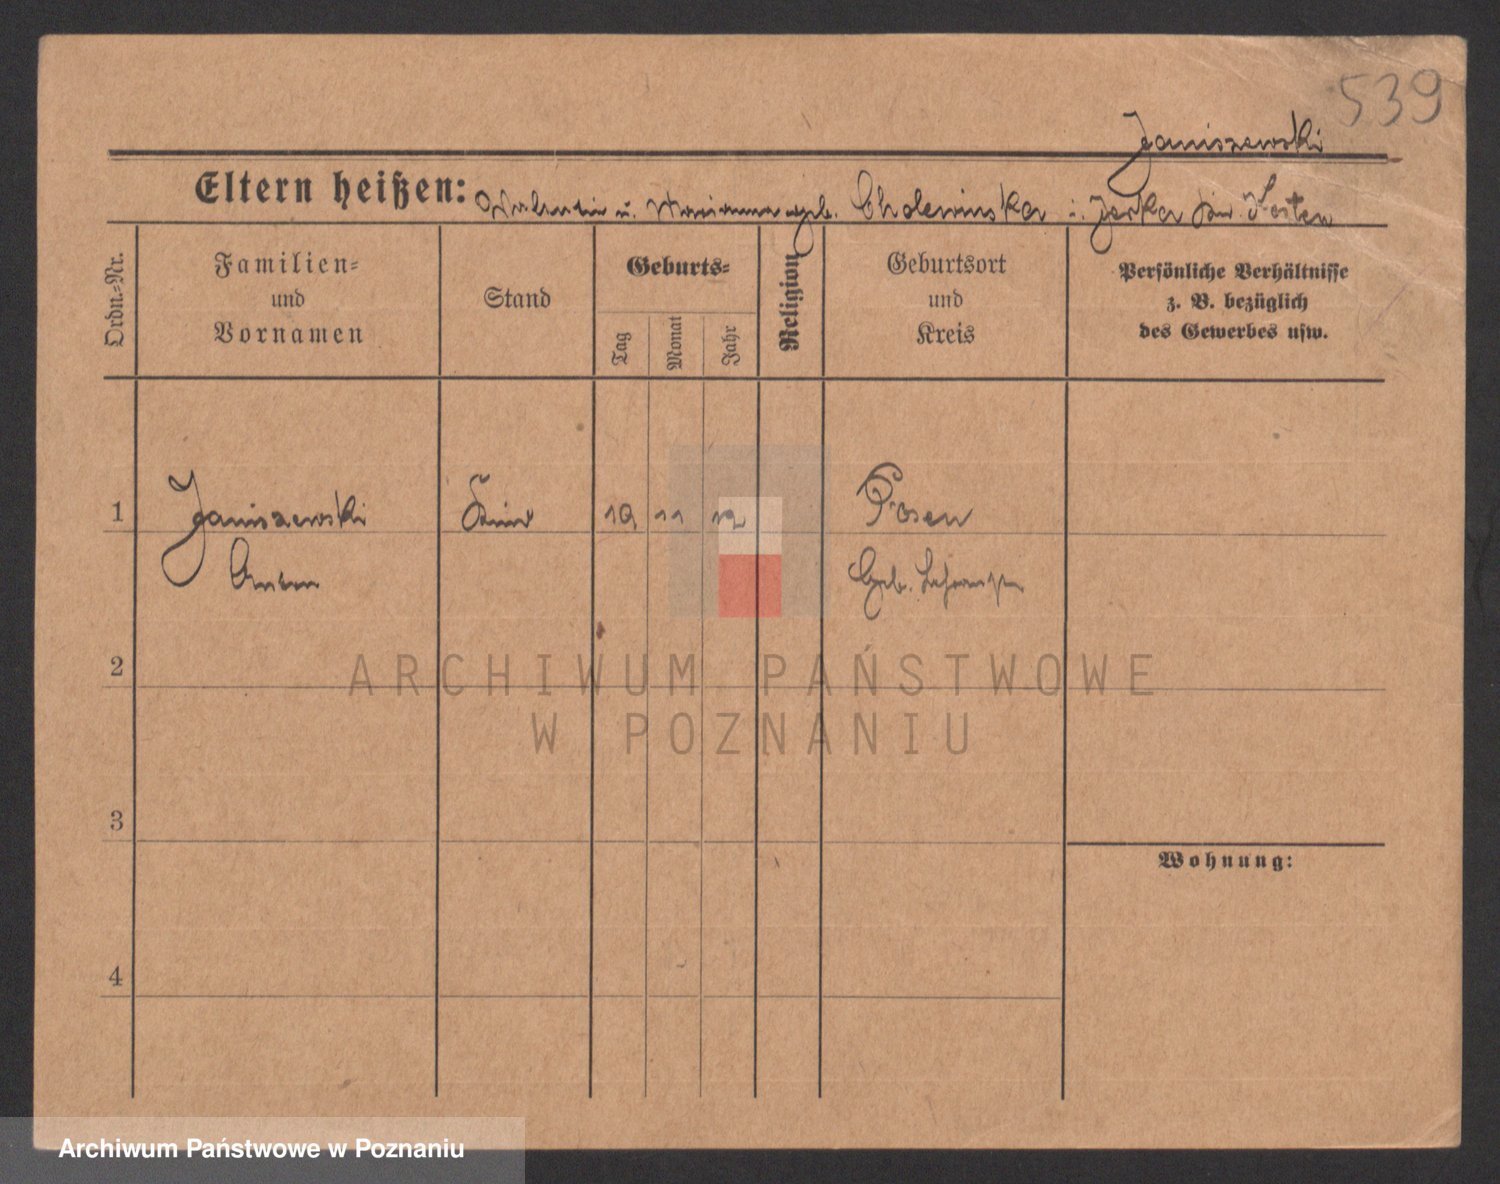 539
Janiszewski
Eltern heißen: Valentin u. Marianna geb. Cholewinska i. Jerka Kr. Kosten
Ordn.-Nr.
Familien-
und
Vornamen
Stand
Geburts-
Tag
Monat
Jahr
Religion
Geburtsort
und
Kreis
Persönliche Verhältnisse
z. B. bezüglich
des Gewerbes usw.
1 Janiszewski Kind 19 11 12 Posen
Geb.
2
3
4
Wohnung:
ARCHIWUM PAŃSTWOWE
W POZNANIU
Archiwum Państwowe w Poznaniu